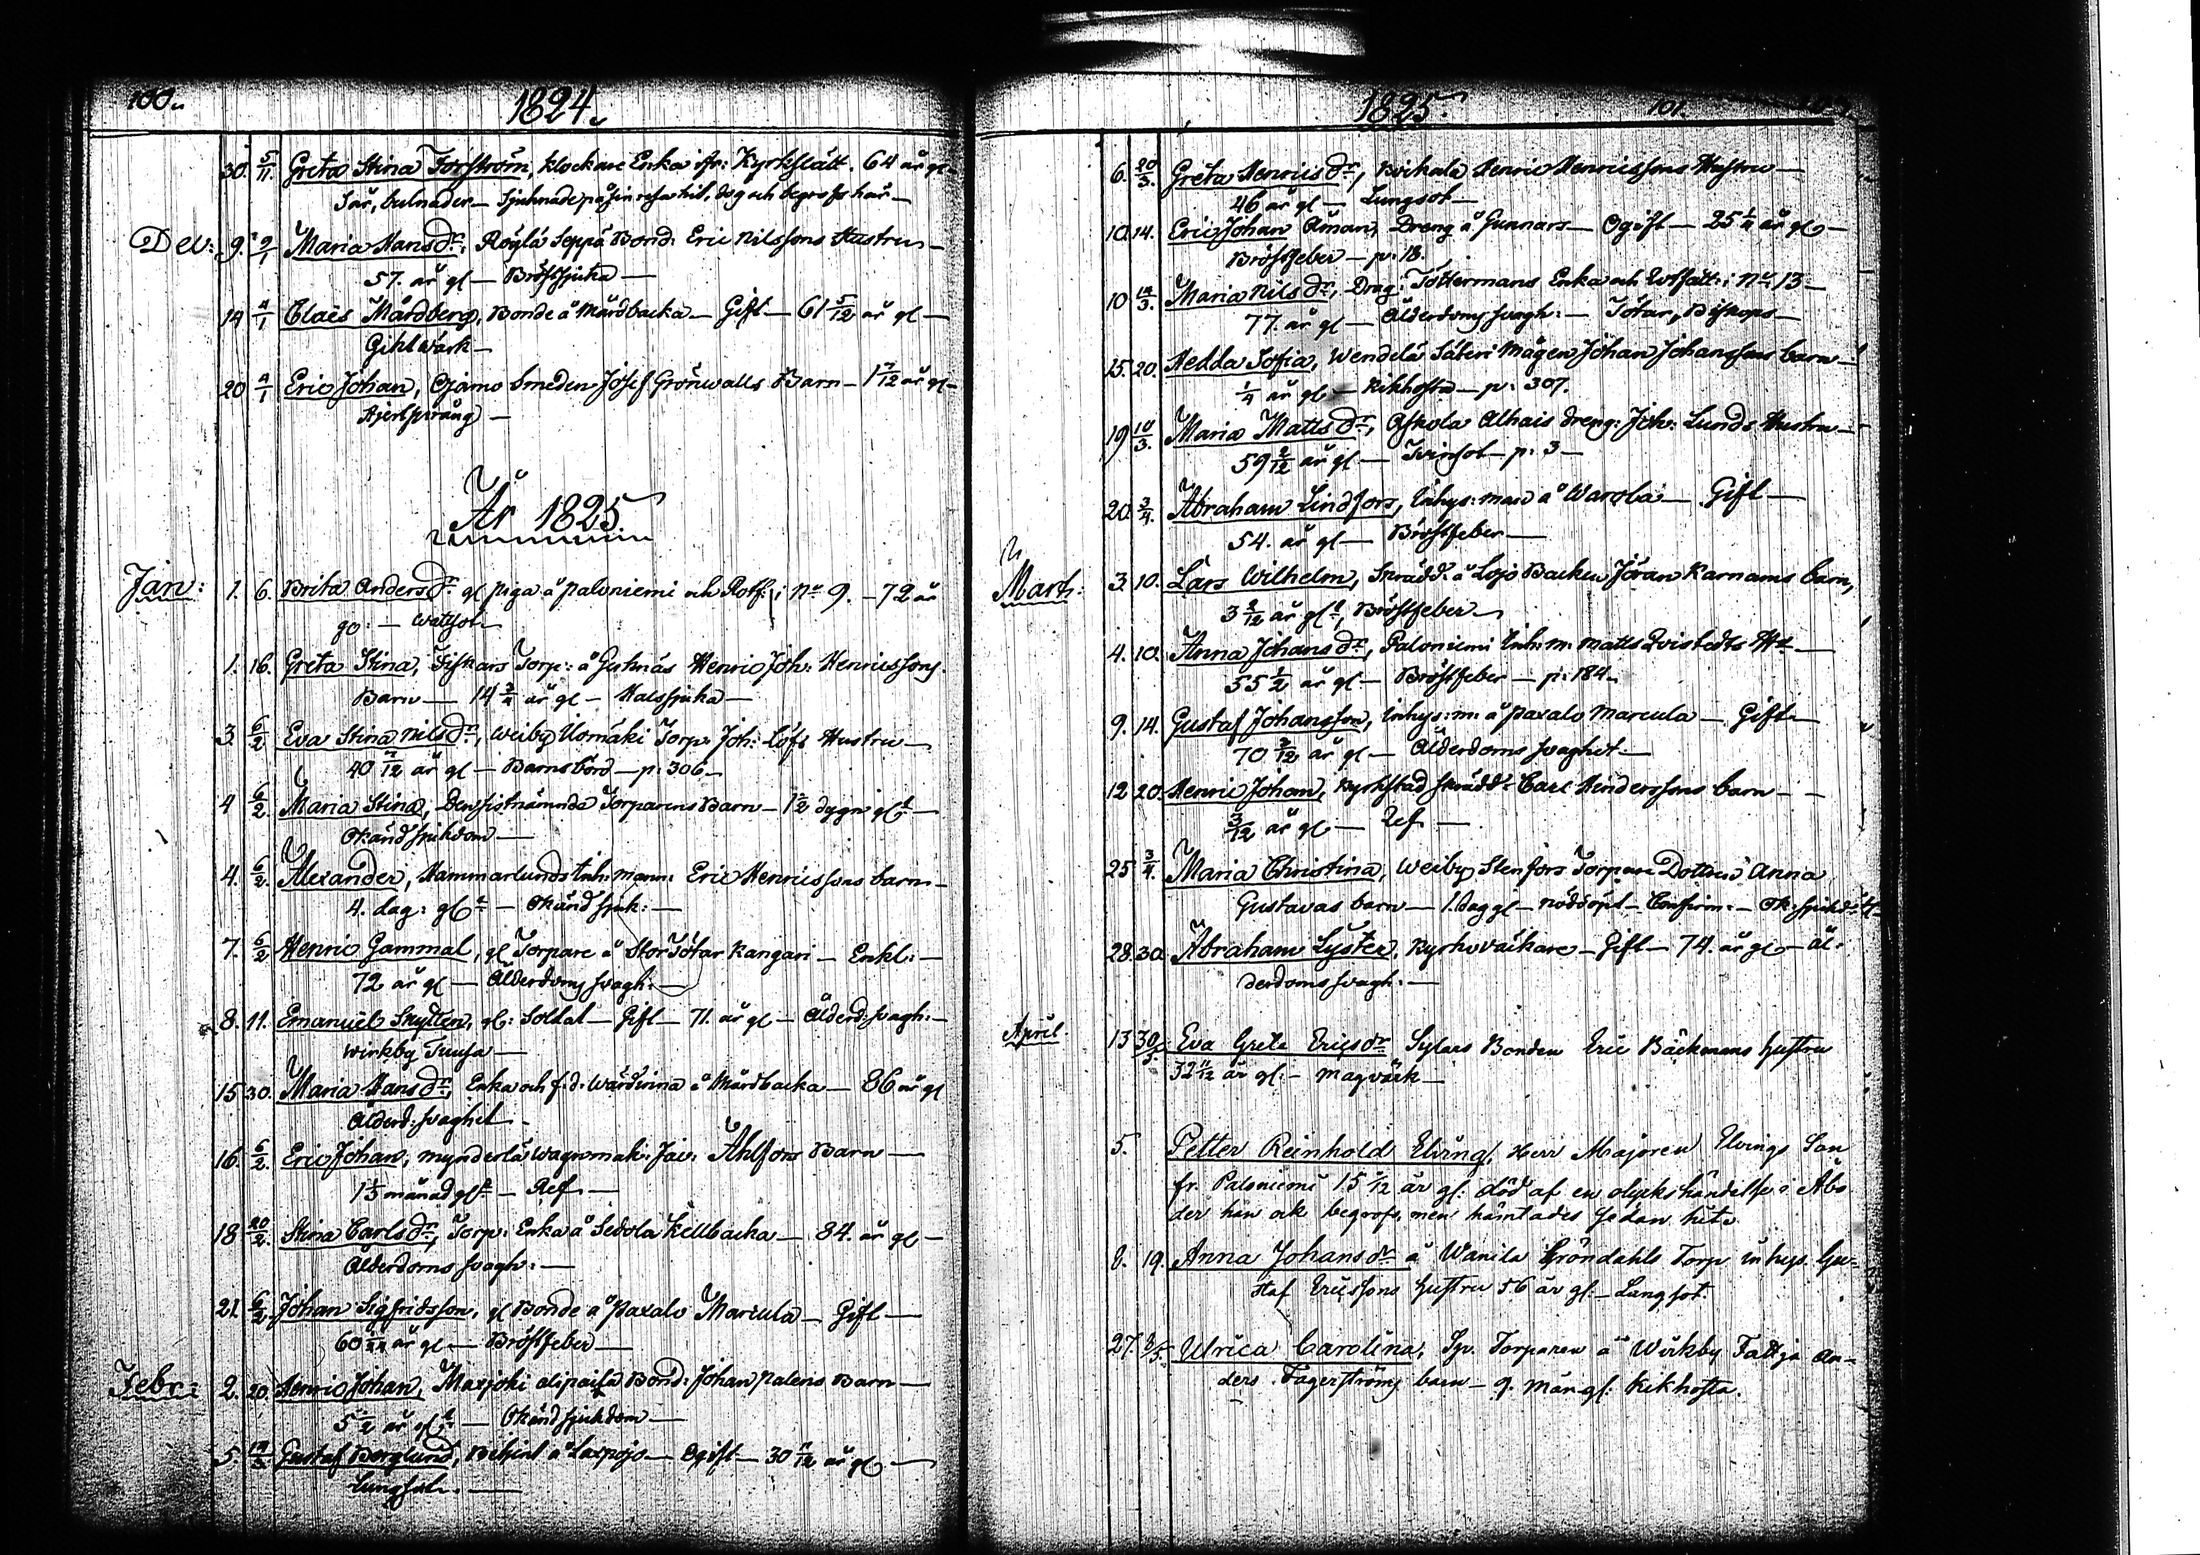 100.
1824.
30. 5/11. Greta Stina Forsström, klockare Enka ifr: Kyrkslätt. 64 år gl
Sår, bulnader — Sjuknade på sin resa hit, dog och begrofs här —
Dec: 9. 9/1 Maria Hansdr. Röglä Seppä Bond: Eric Nilssons Hustru —
57. år gl — Bröstsjuka —
14 4/1 Claës Mårdberg, Bonde å Mårdbacka — Gift — 61 5/12 år gl —
Giktwärk —
20 4/1 Eric Johan, Ojamo Smeden Josef Grönwalls Barn — 1 7/12 år gl —
År 1825.
Jan: 1. 6. Brita Andersdr. gl piga å Paloniemi och Rotf: i No 9. — 72 år
go: — Wattsot
1. 16. Greta Stina, Fiskars Torp: å Gutnäs Henric Joh: Henricssons
Barn — 14 3/4 år gl — Halssjuka —
3. 6/2 Eva Stina Nilsdr., Weiby Uomäki Torp: Joh: Löfs Hustru —
40 7/12 år gl — Barnsbörd — p: 306 —
4 6/2. Maria Stina, Den sistnämnda Torparens Barn — 1 1/2 dygn gl —
Okänd sjukdom —
4. 6/2. Alexander, Hammarlunds Inh: mann: Eric Henricssons barn —
4. dag: gl — Okänd sjuk: —
7. 6/2 Henric Gammal, gl Torpare å Stor Tötar Kangari — Enkl: —
72 år gl — Ålderdoms svagh: —
8. 11. Emanuel Skytten, gl: Soldat — Gift — 71. år gl — Ålderd: svagh: —
Wirkby Tuusa —
15 30. Maria Hansdr. Enka och f.d. Wärdinna å Mårdbacka — 86 år gl
Ålderd: svaghet —
16. 6/2. Eric Johan, Mynderlä Wagnmak: Jac: Ahlfors Barn —
1 1/3 månad gl — Ref. —
18 20/2. Stina Carlsdr., Torp: Enka å Sedola Källbacka — 84. år gl —
Ålderdoms svagh: —
21. 6/2 Johan Sigfridsson, gl Bonde å Paxalo Marcula — Gift —
60 år gl — Bröstfeber —
Febr: 2. 20. Henric Johan, Maxjoki Bond: Johan Palens Barn —
5 1/2 år gl — Okänd sjukdom —
5. Gustaf Berglund, å Laxpojo — Ogift — 30 år gl —
Lungsot. —
1825.
101.
6. 20/3. Greta Henricsdr., Koikala Henric Henricssons Hustru —
46 år gl — Lungsot —
10. 14. Eric Johan Åman, Dreng å Gunnars — Ogift — 25 1/4 år gl —
Bröstfeber — p: 18.
10 14/3. Maria Nilsdr., Drag: Tottermans Enka och Rotfatt: i No 13 —
77. år gl — Ålderdoms svagh: — Tötar, Biskops —
15. 20. Hedda Sofia, Wendelä Säteri Mågen Johan Johanssons barn —
1/4 år gl — Kikhosta — p: 307.
19 10/3. Maria Mattsdr., Oskola Alhais Dreng: Joh: Lunds Hustru —
59 2/12 år gl — Tvinsot — p: 3 —
20. 3/4. Abraham Lindfors, Inhys: man å Warola — Gift —
54. år gl — Bröstfeber —
Mart: 3. 10. Lars Wilhelm, Skrädd: å Lojo Backen Jöran Karnams barn,
3 2/12 år gl, Bröstfeber —
4. 10. Anna Johansdr., Paloniemi Inh: m: Matts Qvistedts H —
55 1/2 år gl — Bröstfeber — p: 184 —
9. 14. Gustaf Johansson, Inhys: m: å Paxalo Marcula — Gift —
70 3/12 år gl — Ålderdoms svaghet —
12 20. Henric Johan, Kyrkstad Skrädd: Carl Hinderssons barn — —
3/12 år gl — Ref —
25 3/4. Maria Christina, Weiby Stenfors Torpare Dottren Anna
Gustavas barn — 1. dag gl — nöddöpt — Confirm: — Ok: sjukd:
28. 30. Abraham Lyster, Kyrkoväktare — Gift — 74. år gl — ål:
derdoms svagh: —
April 13 30/5 Eva Greta Ericsdr Sylars Bonden Eric Bäckmans hustru
32 11/12 år gl: — magvärk —
5. Petter Reinhold Elving, Herr Majoren Elvings Son
fr. Paloniemi 15 år gl: död af en olyckshändelse i Åbo
der han ock begrofs, men hämtades sedan hit.
8. 19. Anna Johansdr å Wanila Gröndahls Torp inhys. Gu=
staf Ericssons hustru 56 år gl: — Lungsot.
27. 8/5. Ulrica Carolina, Torparen å Wirkby Tattja An—
ders Fagerströms barn — 9. mån gl: Kikhosta.